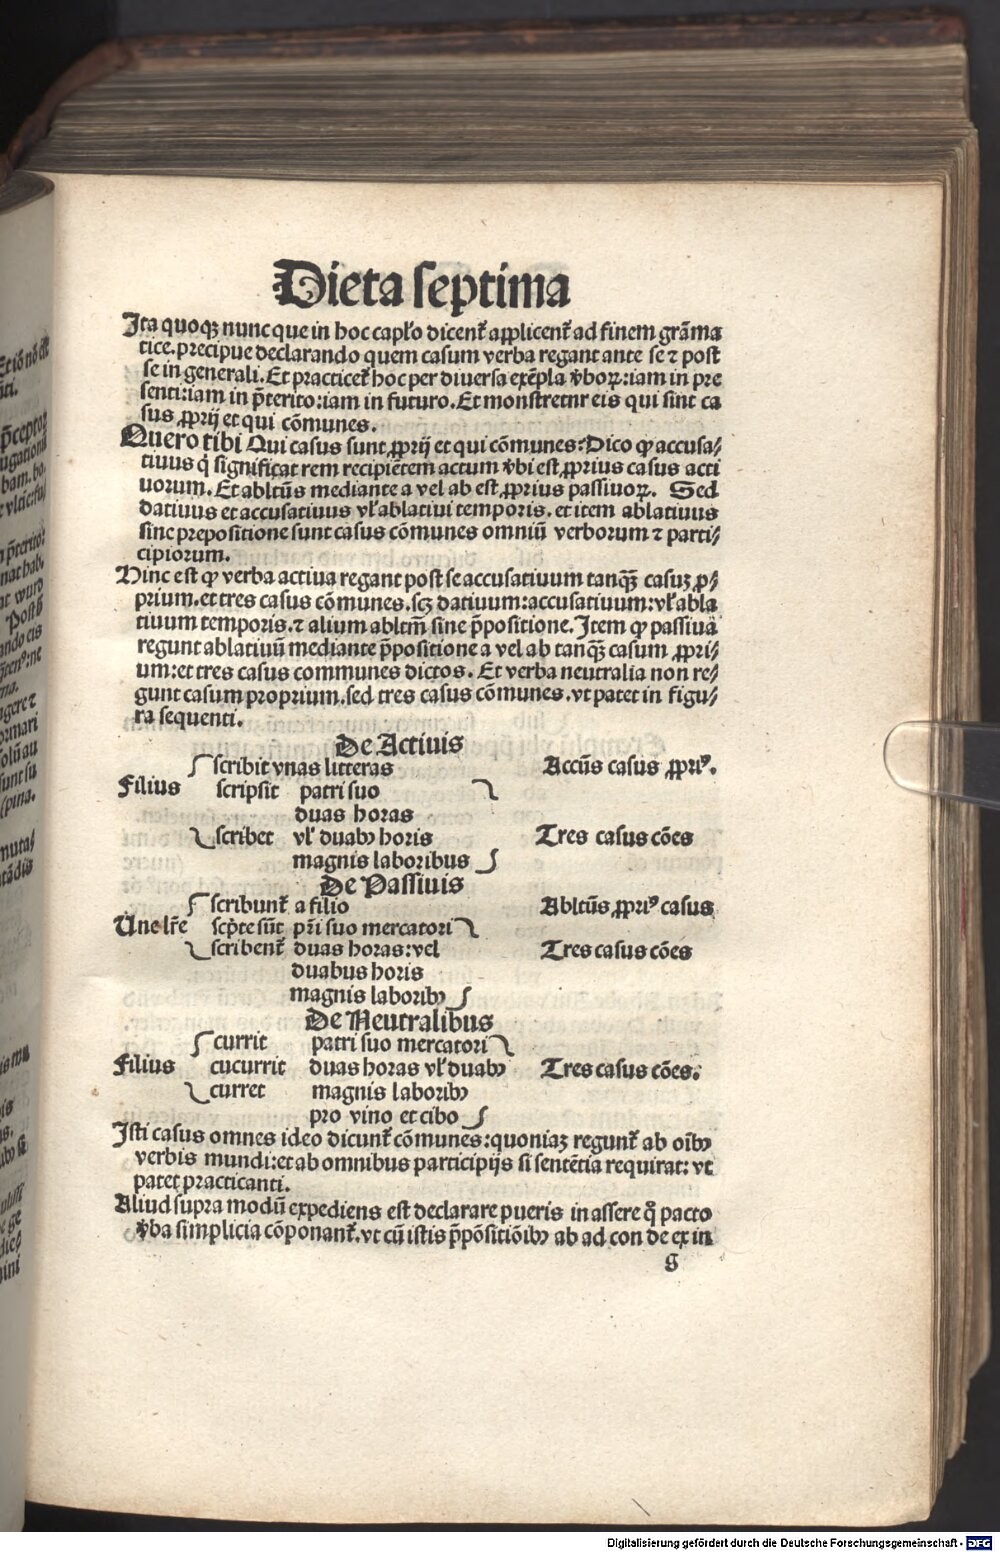 Dieta septima
Ita quoqꝫ nunc que in hoc capl'o dicent᷑ applicent᷑ ad finem grāma
tice. precipue declarando quem casum verba regant ante se ⁊ post
se in generali. Et practicet᷑ hoc per diuersa exēpla v̄boꝝ: iam in pre
senti: iam in p̄terito: iam in futuro. Et monstretnr eis qui sint ca
sus ꝓprij et qui cōmunes.
Quero tibi Qui casus sunt ꝓprij et qui cōmunes: Dico ꝙ accusa/
tiuus q̇ significat rem recipiētem actum v̄bi est ꝓprius casus acti
uorum. Et abltūs mediante a vel ab est ꝓprius passiuoꝝ. Sed
datiuus et accusatiuus vl' ablatiui temporis. et item ablatiuus
sine prepositione sunt casus cōmunes omniū verborum ⁊ parti/
cipiorum.
Hinc est ꝙ verba actiua regant post se accusatiuum tanqꝫ̄ casuꝫ ꝓ/
prium. et tres casus cōmunes. scꝫ datiuum: accusatiuum: vl' abla
tiuum temporis. ⁊ alium abltm̄ sine p̄positione. Item ꝙ passiua
regunt ablatiuū mediante p̄positione a vel ab tanqꝫ̄ casum ꝓpri/
um: et tres casus communes dictos. Et verba neutralia non re/
gunt casum proprium. sed tres casus cōmunes. vt patet in figu/
ra sequenti.
De Actiuis
scribit vnas litteras Accūs casus ꝓpriꝰ.
Filius scripsit patri suo
duas horas
scribet vl' duabꝫ horis Tres casus cōes
magnis laboribus
De Passiuis
scribunt᷑ a filio Abltūs ꝓpriꝰ casus
Une lr̄e sc̄pte sūt pr̄i suo mercatori
scribent᷑ duas horas: vel Tres casus cōes
duabus horis
magnis laboribꝫ
De Neutralibus
currit patri suo mercatori
Filius cucurrit duas horas vl' duabꝫ Tres casus cōes.
curret magnis laboribꝫ
pro vino et cibo
Isti casus omnes ideo dicunt᷑ cōmunes: quoniaꝫ regunt᷑ ab oībꝫ
verbis mundi: et ab omnibus participijs si sentētia requirat: vt
patet practicanti.
Aliud supra modū expediens est declarare pueris in assere q̄ pacto
v̄ba simplicia cōponant᷑. vt cū istis p̄pōsitiōibꝫ ab ad con de ex in
g
Digitalisierung gefördert durch die Deutsche Forschungsgemeinschaft - DFG